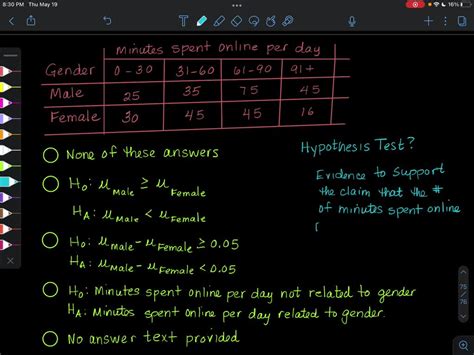 8:30 PM Thu May 19
16%
Minutes spent online per day
Gender 0-30 31-60 61-90 91+
Male 25 35 75 45
Female 30 45 45 16
None of these answers
H₀: μ Male ≥ μ Female
H_A: μ Male < μ Female
H₀: μ Male - μ Female ≥ 0.05
H_A: μ Male - μ Female < 0.05
H₀: Minutes spent online per day not related to gender
H_A: Minutes spent online per day related to gender.
No answer text provided
Hypothesis Test?
Evidence to support
the claim that the #
of minutes spent online
75
76